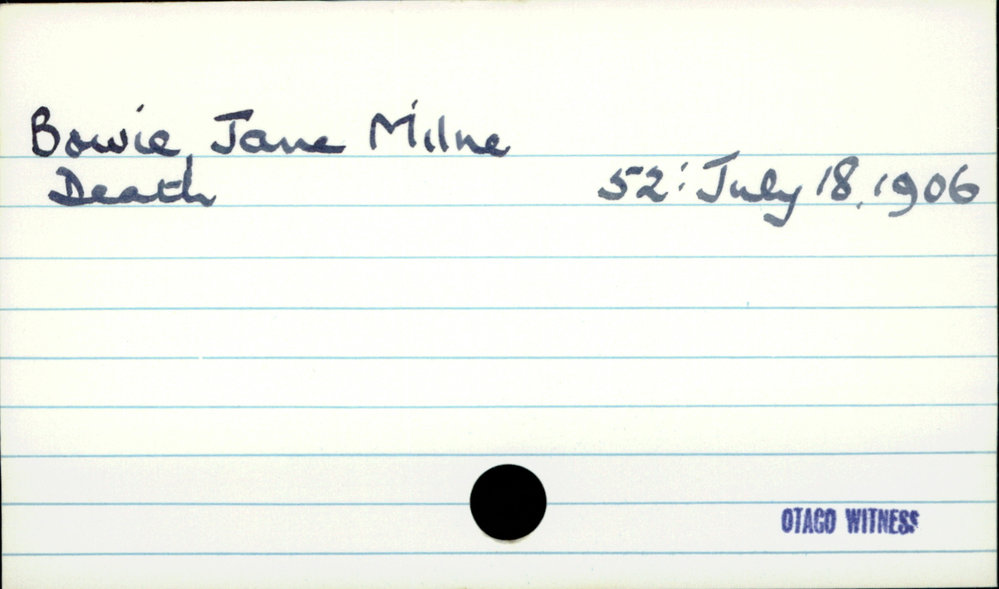 Bowie, Jane Milne
Death 52: July 18, 1906
OTAGO WITNESS